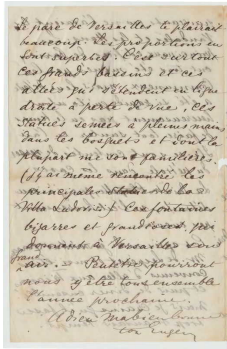 Le parc de Versailles te plairait
beaucoup. Les proportions en
sont superbes. C'est surtout
ces grands bassins et ces
allées qui s'étendent en ligne
droite à perte de vue. Ces
statues semées à pleines mains
dans les bosquets et dont la
plupart me sont familières
(j'y ai même rencontré les
principales statues de la
Villa Ludovisi). Les fontaines
bizarres et grandioses
donnent à Versailles
grand air. Peut-être pourrons
nous y être tous ensemble
l'année prochaine.
Adieu ma bien
ton Eugène